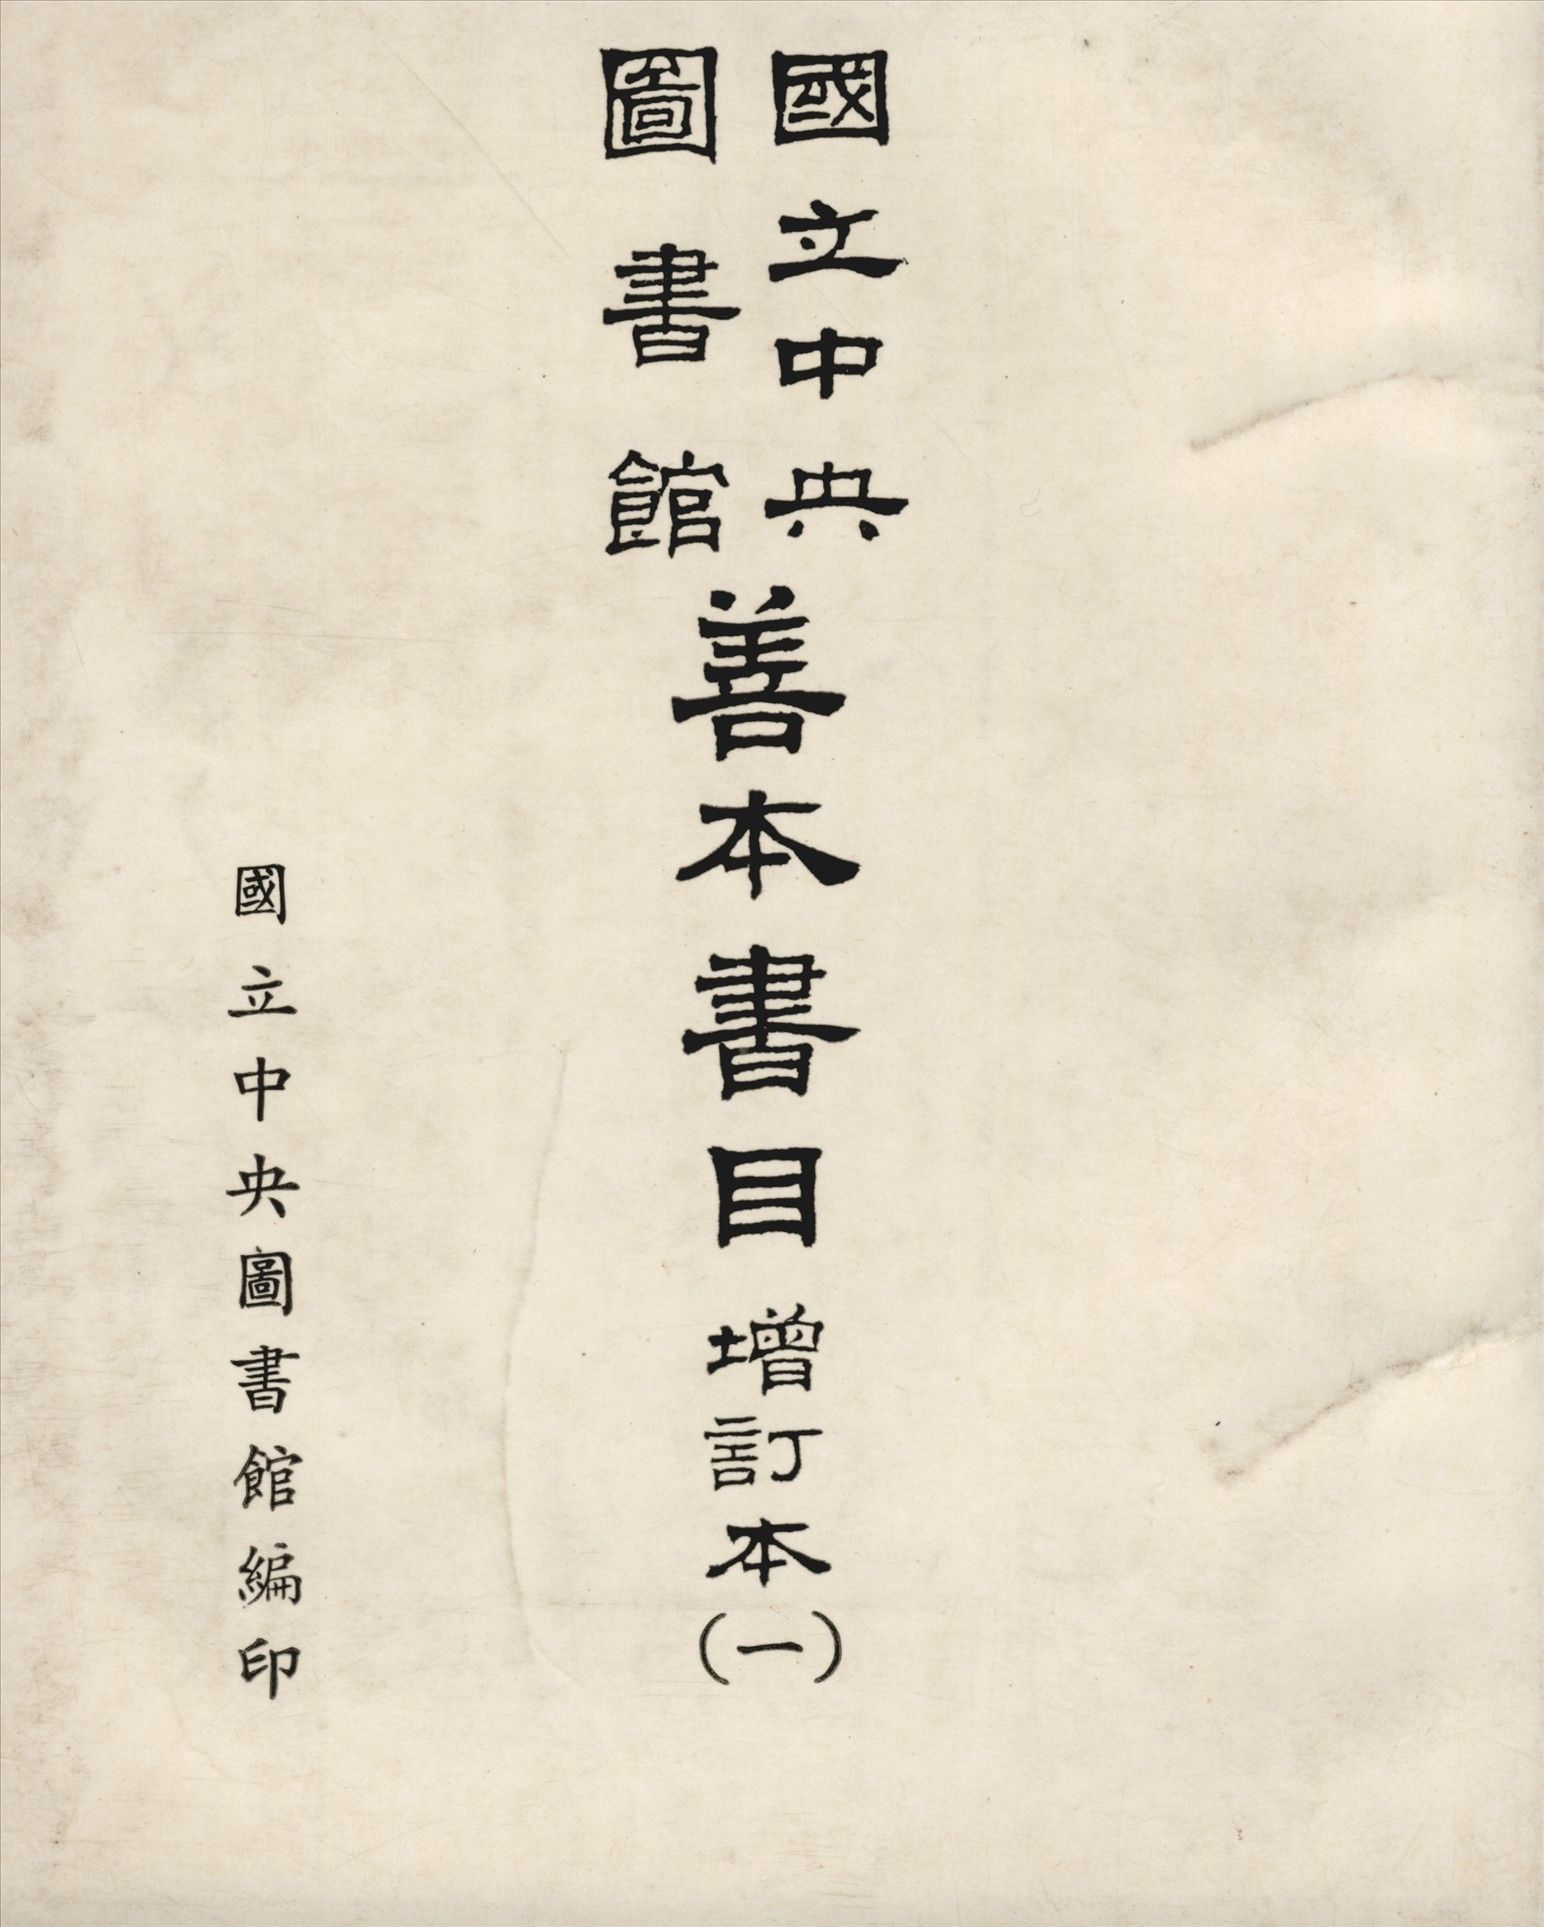 國立中央
圖書館
善本書目增訂本(一)
國立中央圖書館編印